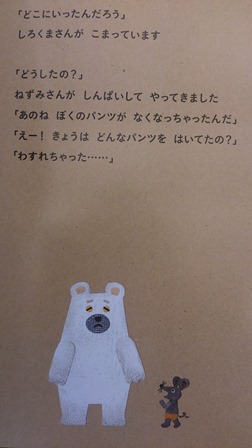 「どこにいったんだろう」
しろくまさんが こまっています
「どうしたの?」
ねずみさんが しんぱいして やってきました
「あのね ぼくのパンツが なくなっちゃったんだ」
「えー! きょうは どんなパンツを はいてたの?」
「わすれちゃった……」